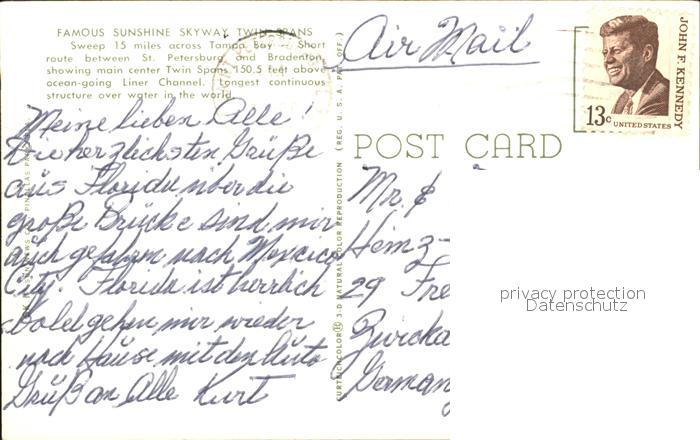 FAMOUS SUNSHINE SKYWAY, TWIN SPANS
Sweep 15 miles across Tampa Bay — Short
route between St. Petersburg and Bradenton,
showing main center Twin Spans 150.5 feet above
ocean-going Liner Channel. Longest continuous
structure over water in the world.
Meine lieben Alle!
Die herzlichsten Grüße
aus Florida über die
große Brücke sind mir
auch gefahren nach Mexico
City. Florida ist herrlich
bald gehen mir wieder
nach Hause mit den Auto
Gruß an Alle Kurt
3-D NATURAL COLOR REPRODUCTION (REG. U.S.A. PAT. OFF.)
Air Mail
POST CARD
JOHN F. KENNEDY
13c UNITED STATES
Mr. &
Heinz-
29 Fre
Zwicka
German
privacy protection
Datenschutz